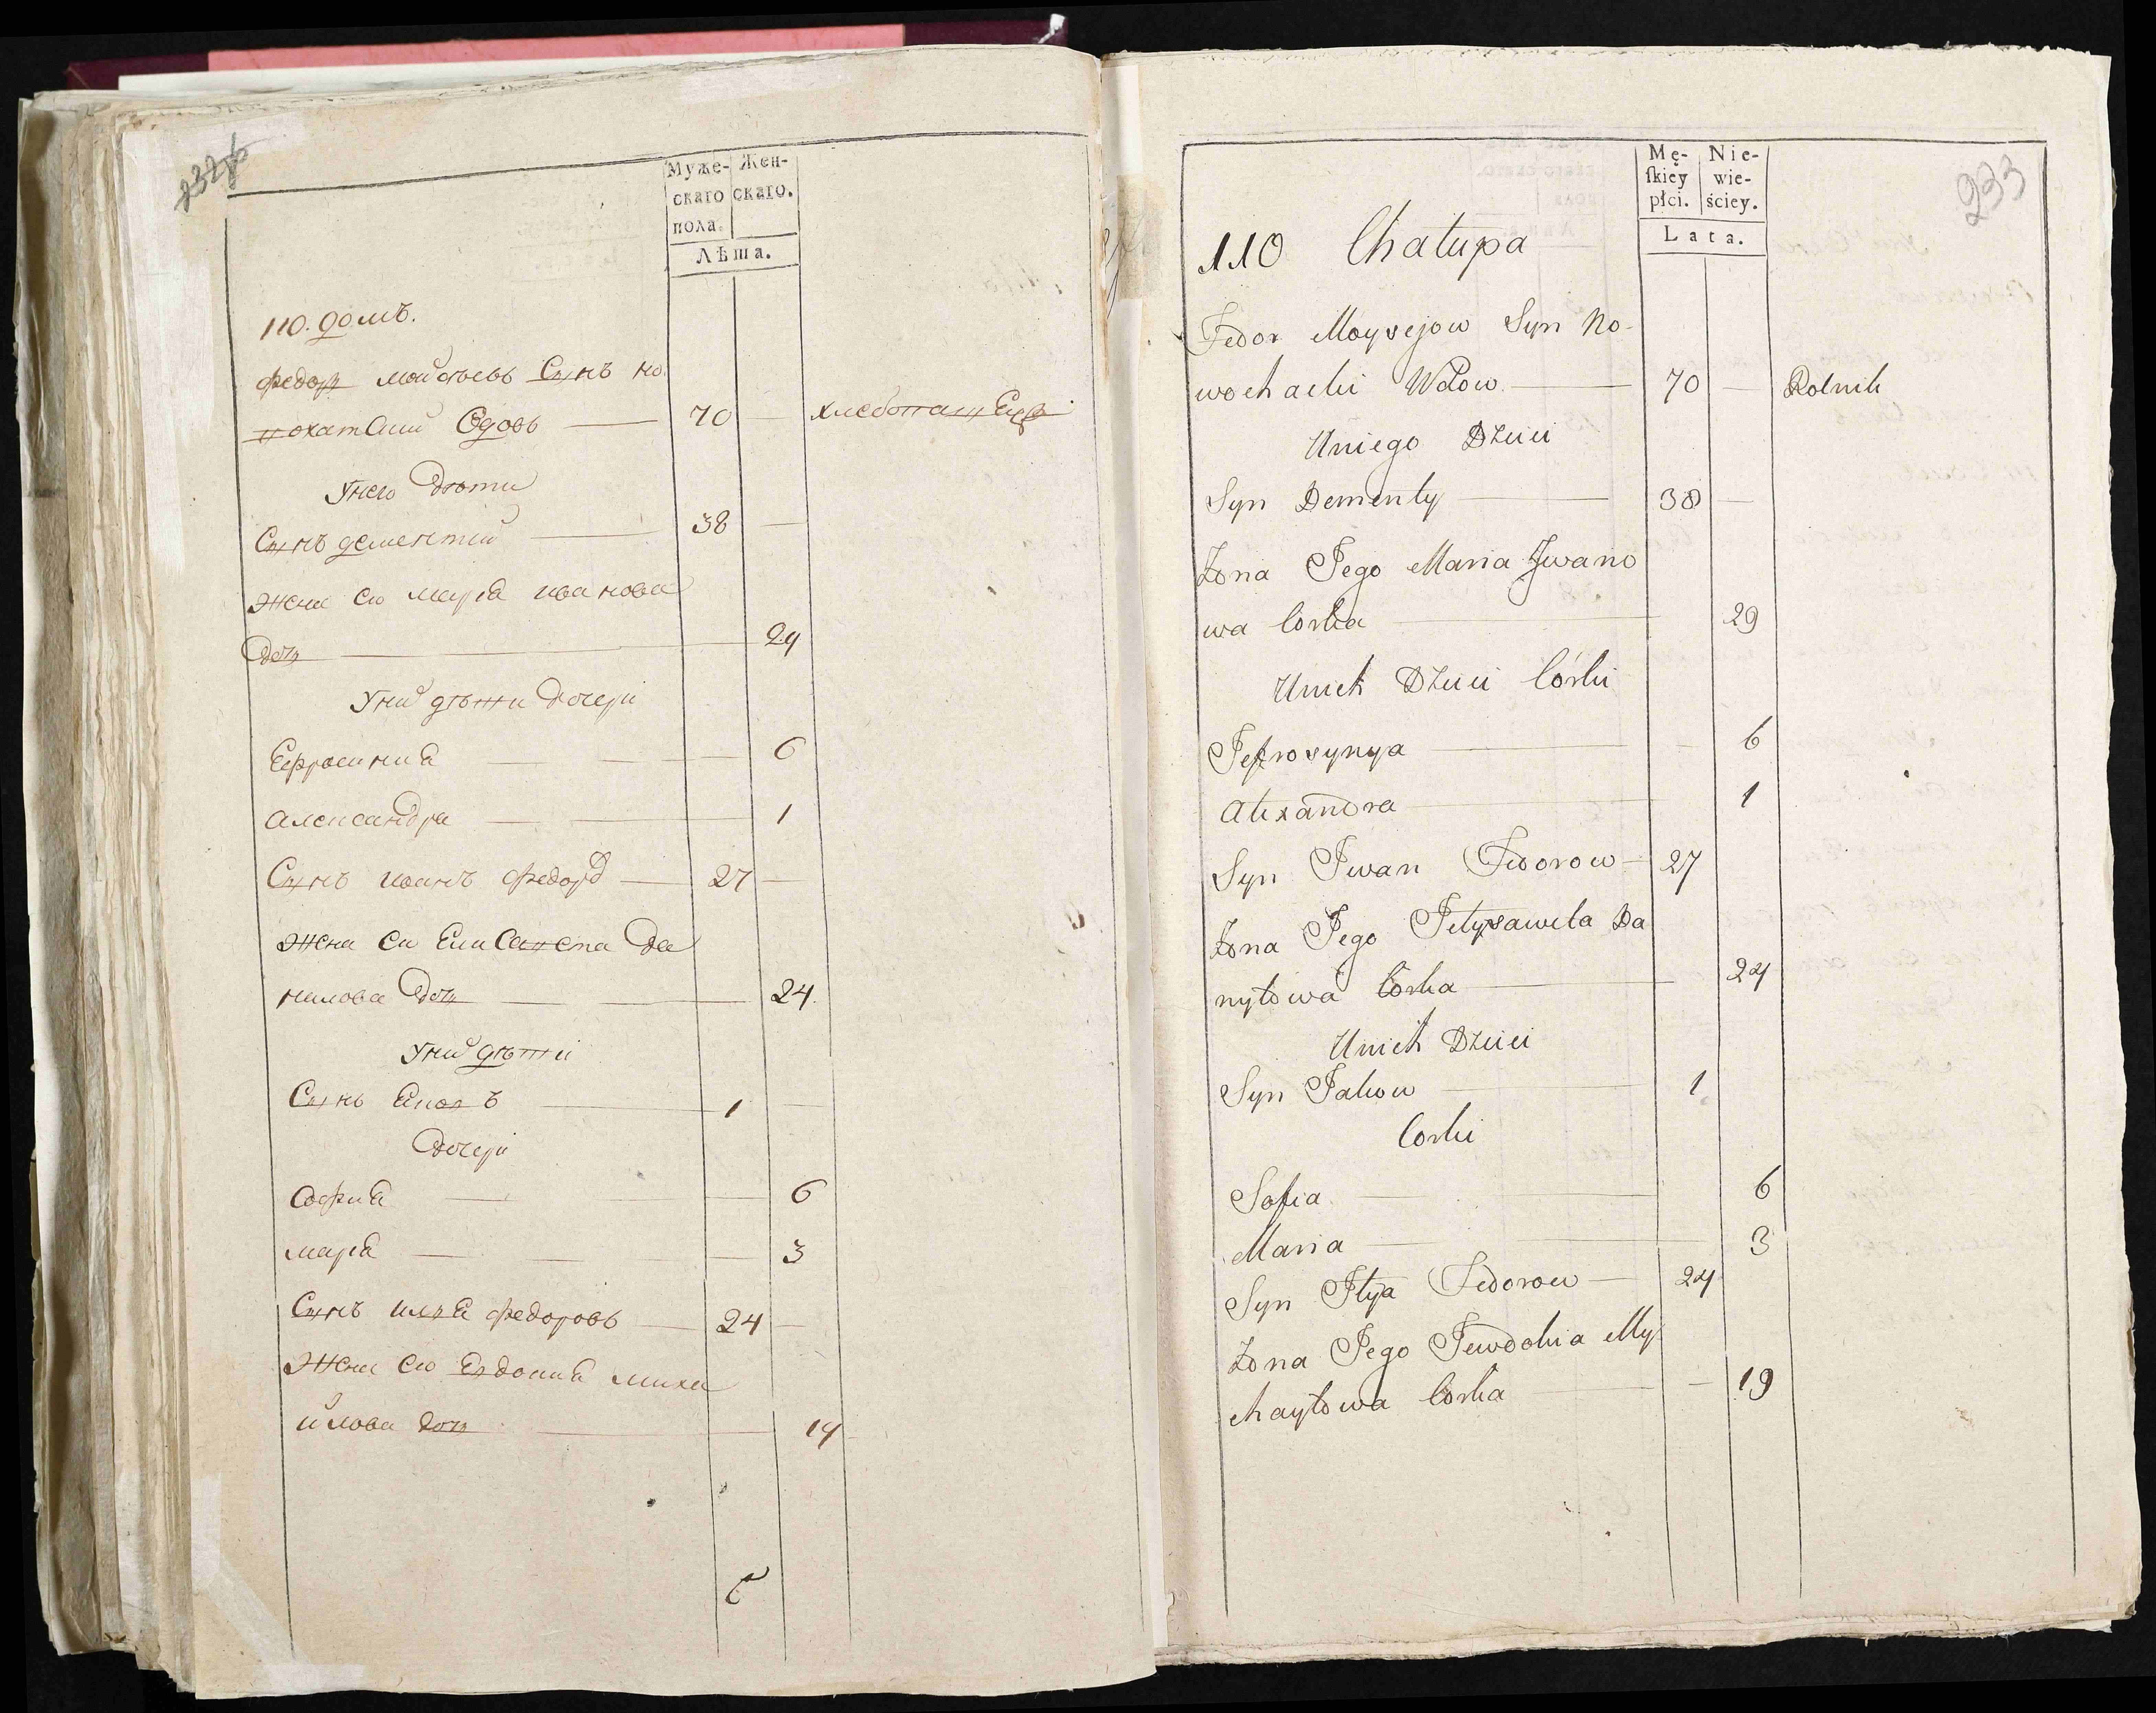 232
Муже-
скаго
пола.
Жен-
скаго.
Лѣта.
110. домъ.
федоръ мойсѣевъ Сынъ но
вохатский Вдовъ — 70 — хлебопашецъ
У него Дѣти
Сынъ дементий — 38 —
Жена его мария иванова
Дочь — 29
У них дѣти Дочери
Ефросиния — 6
александра — 1
Сынъ иванъ федоровъ — 27 —
Жена его Елисавета Да
нилова Дочь — 24
У них дѣти
Сынъ яковъ — 1 —
Дочери
София — 6
мария — 3
Сынъ илья федоровъ — 24 —
Жена его Евдокия миха
йлова дочь — 19
233
Mę-
ſkiey
płci.
Nie-
wie-
ściey.
Lata.
110 Chałupa
Fedor Moysejow Syn No-
wochacki Wdow. — 70 — Rolnik
U niego Dzieci
Syn Dementy — 38 —
Żona Jego Maria Jwano
wa Corka — 29
U nich Dzieci Córki
Jefrosynya — 6
Alexandra — 1
Syn Jwan Fedorow — 27
Żona Jego Jelysaweta Da
nyłowa Corka — 24
U nich Dzieci
Syn Jakow — 1
Corki
Sofia — 6
Maria — 3
Syn Jlya Fedorow — 24
Żona Jego Jewdokia My
chayłowa Corka — 19